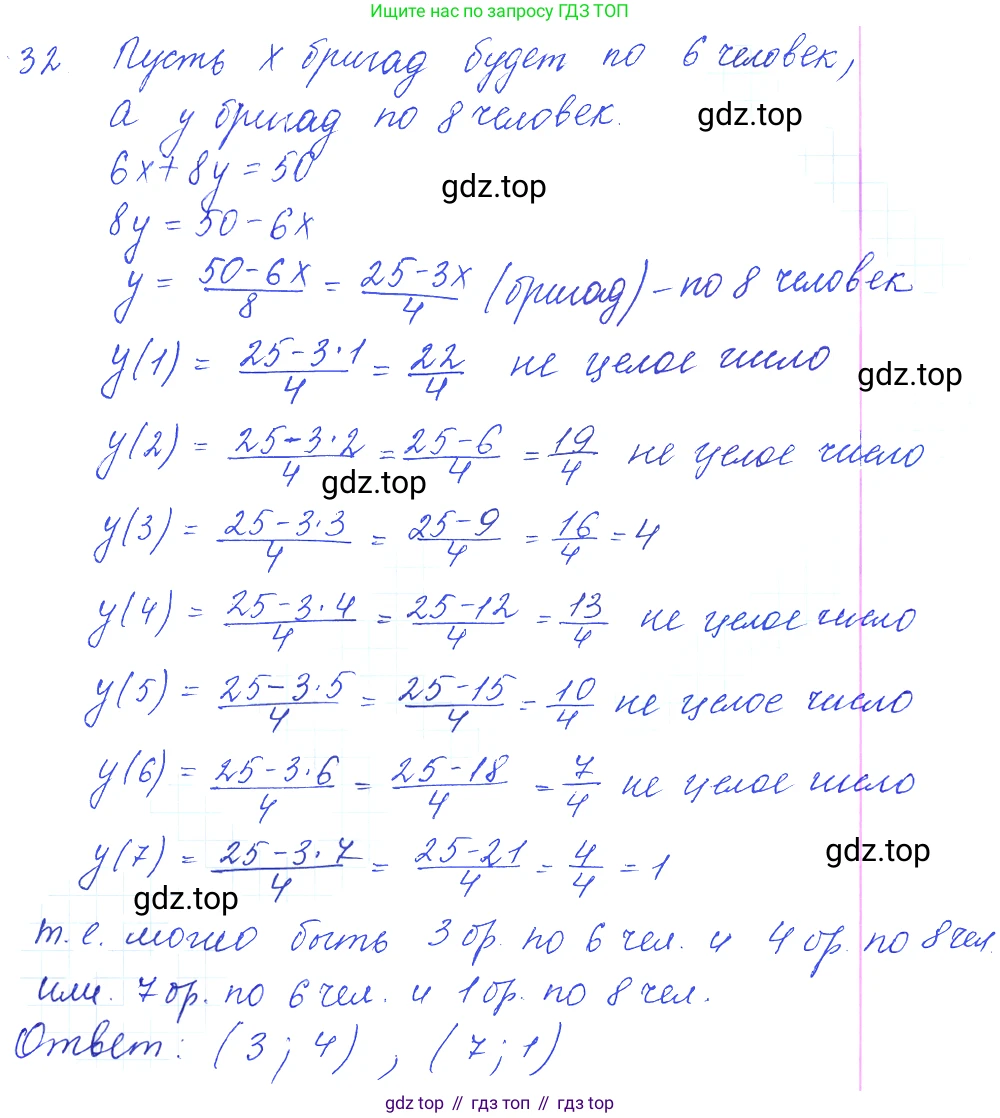 Ищите нас по запросу ГДЗ ТОП
32 Пусть x бригад будет по 6 человек,
а y бригад по 8 человек.
gdz.top
6x + 8y = 50
gdz.top
8y = 50 - 6x
y = (50 - 6x)/8 = (25 - 3x)/4 (бригад) - по 8 человек
y(1) = (25 - 3·1)/4 = 22/4 не целое число
gdz.top
y(2) = (25 - 3·2)/4 = (25 - 6)/4 = 19/4 не целое число
gdz.top
y(3) = (25 - 3·3)/4 = (25 - 9)/4 = 16/4 = 4
y(4) = (25 - 3·4)/4 = (25 - 12)/4 = 13/4 не целое число
y(5) = (25 - 3·5)/4 = (25 - 15)/4 = 10/4 не целое число
y(6) = (25 - 3·6)/4 = (25 - 18)/4 = 7/4 не целое число
y(7) = (25 - 3·7)/4 = (25 - 21)/4 = 4/4 = 1
gdz.top
gdz.top
т.е. могло быть 3 бр. по 6 чел. и 4 бр. по 8 чел.
или 7 бр. по 6 чел. и 1 бр. по 8 чел.
Ответ: (3; 4), (7; 1)
gdz top // гдз топ // гдз top